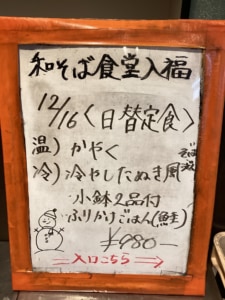 和そば食堂入福
12/16〈日替定食〉
温）かやく
冷）冷やしたぬき風
小鉢2品付
ふりかけごはん(鮭)
¥980-
入口こちら